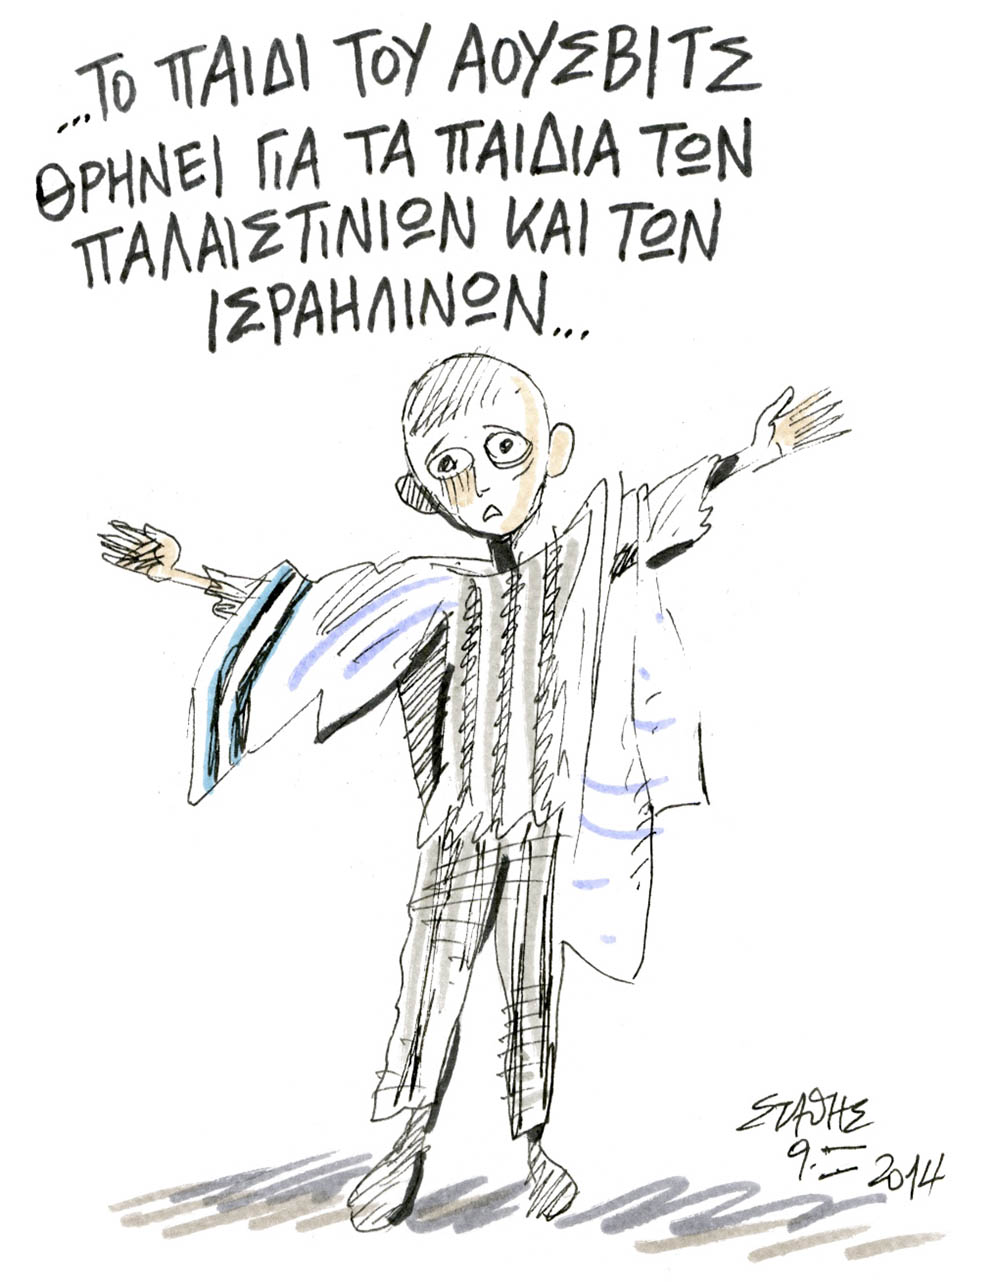 ...ΤΟ ΠΑΙΔΙ ΤΟΥ ΑΟΥΣΒΙΤΣ
ΘΡΗΝΕΙ ΓΙΑ ΤΑ ΠΑΙΔΙΑ ΤΩΝ
ΠΑΛΑΙΣΤΙΝΙΩΝ ΚΑΙ ΤΩΝ
ΙΣΡΑΗΛΙΝΩΝ...
ΣΤΑΘΗΣ
9.II 2014